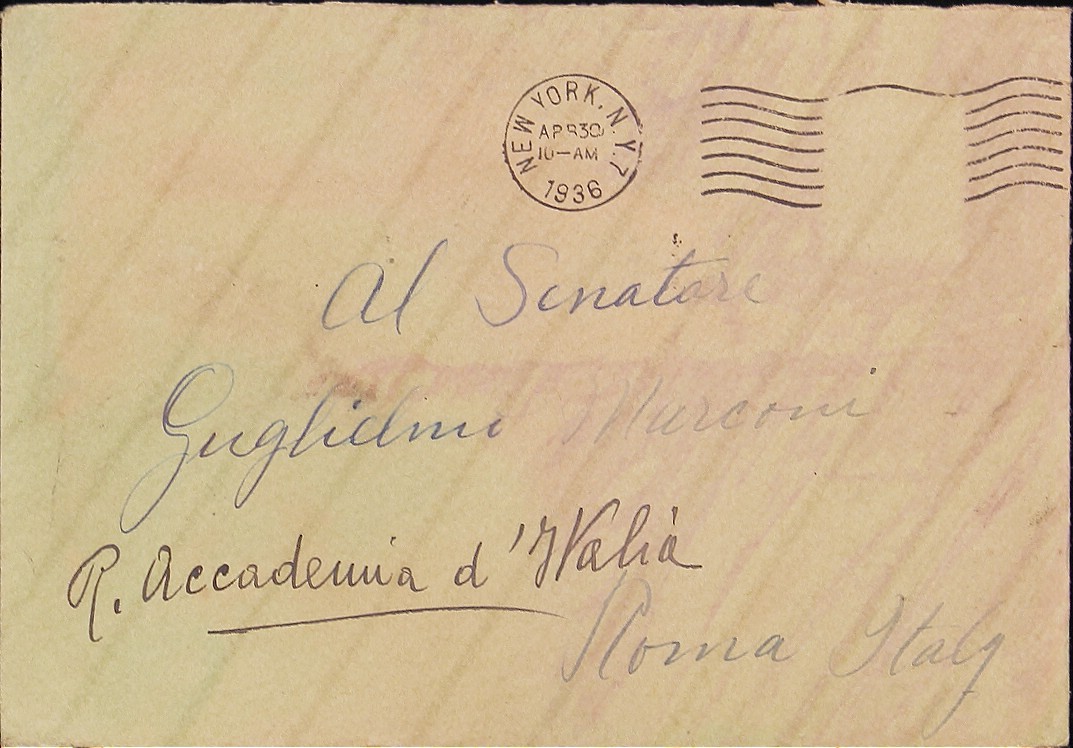 NEW YORK, N.Y. 7
APR 30
10-AM
1936
Al Senatore
Guglielmo Marconi
R. Accademia d'Italia
Roma Italy